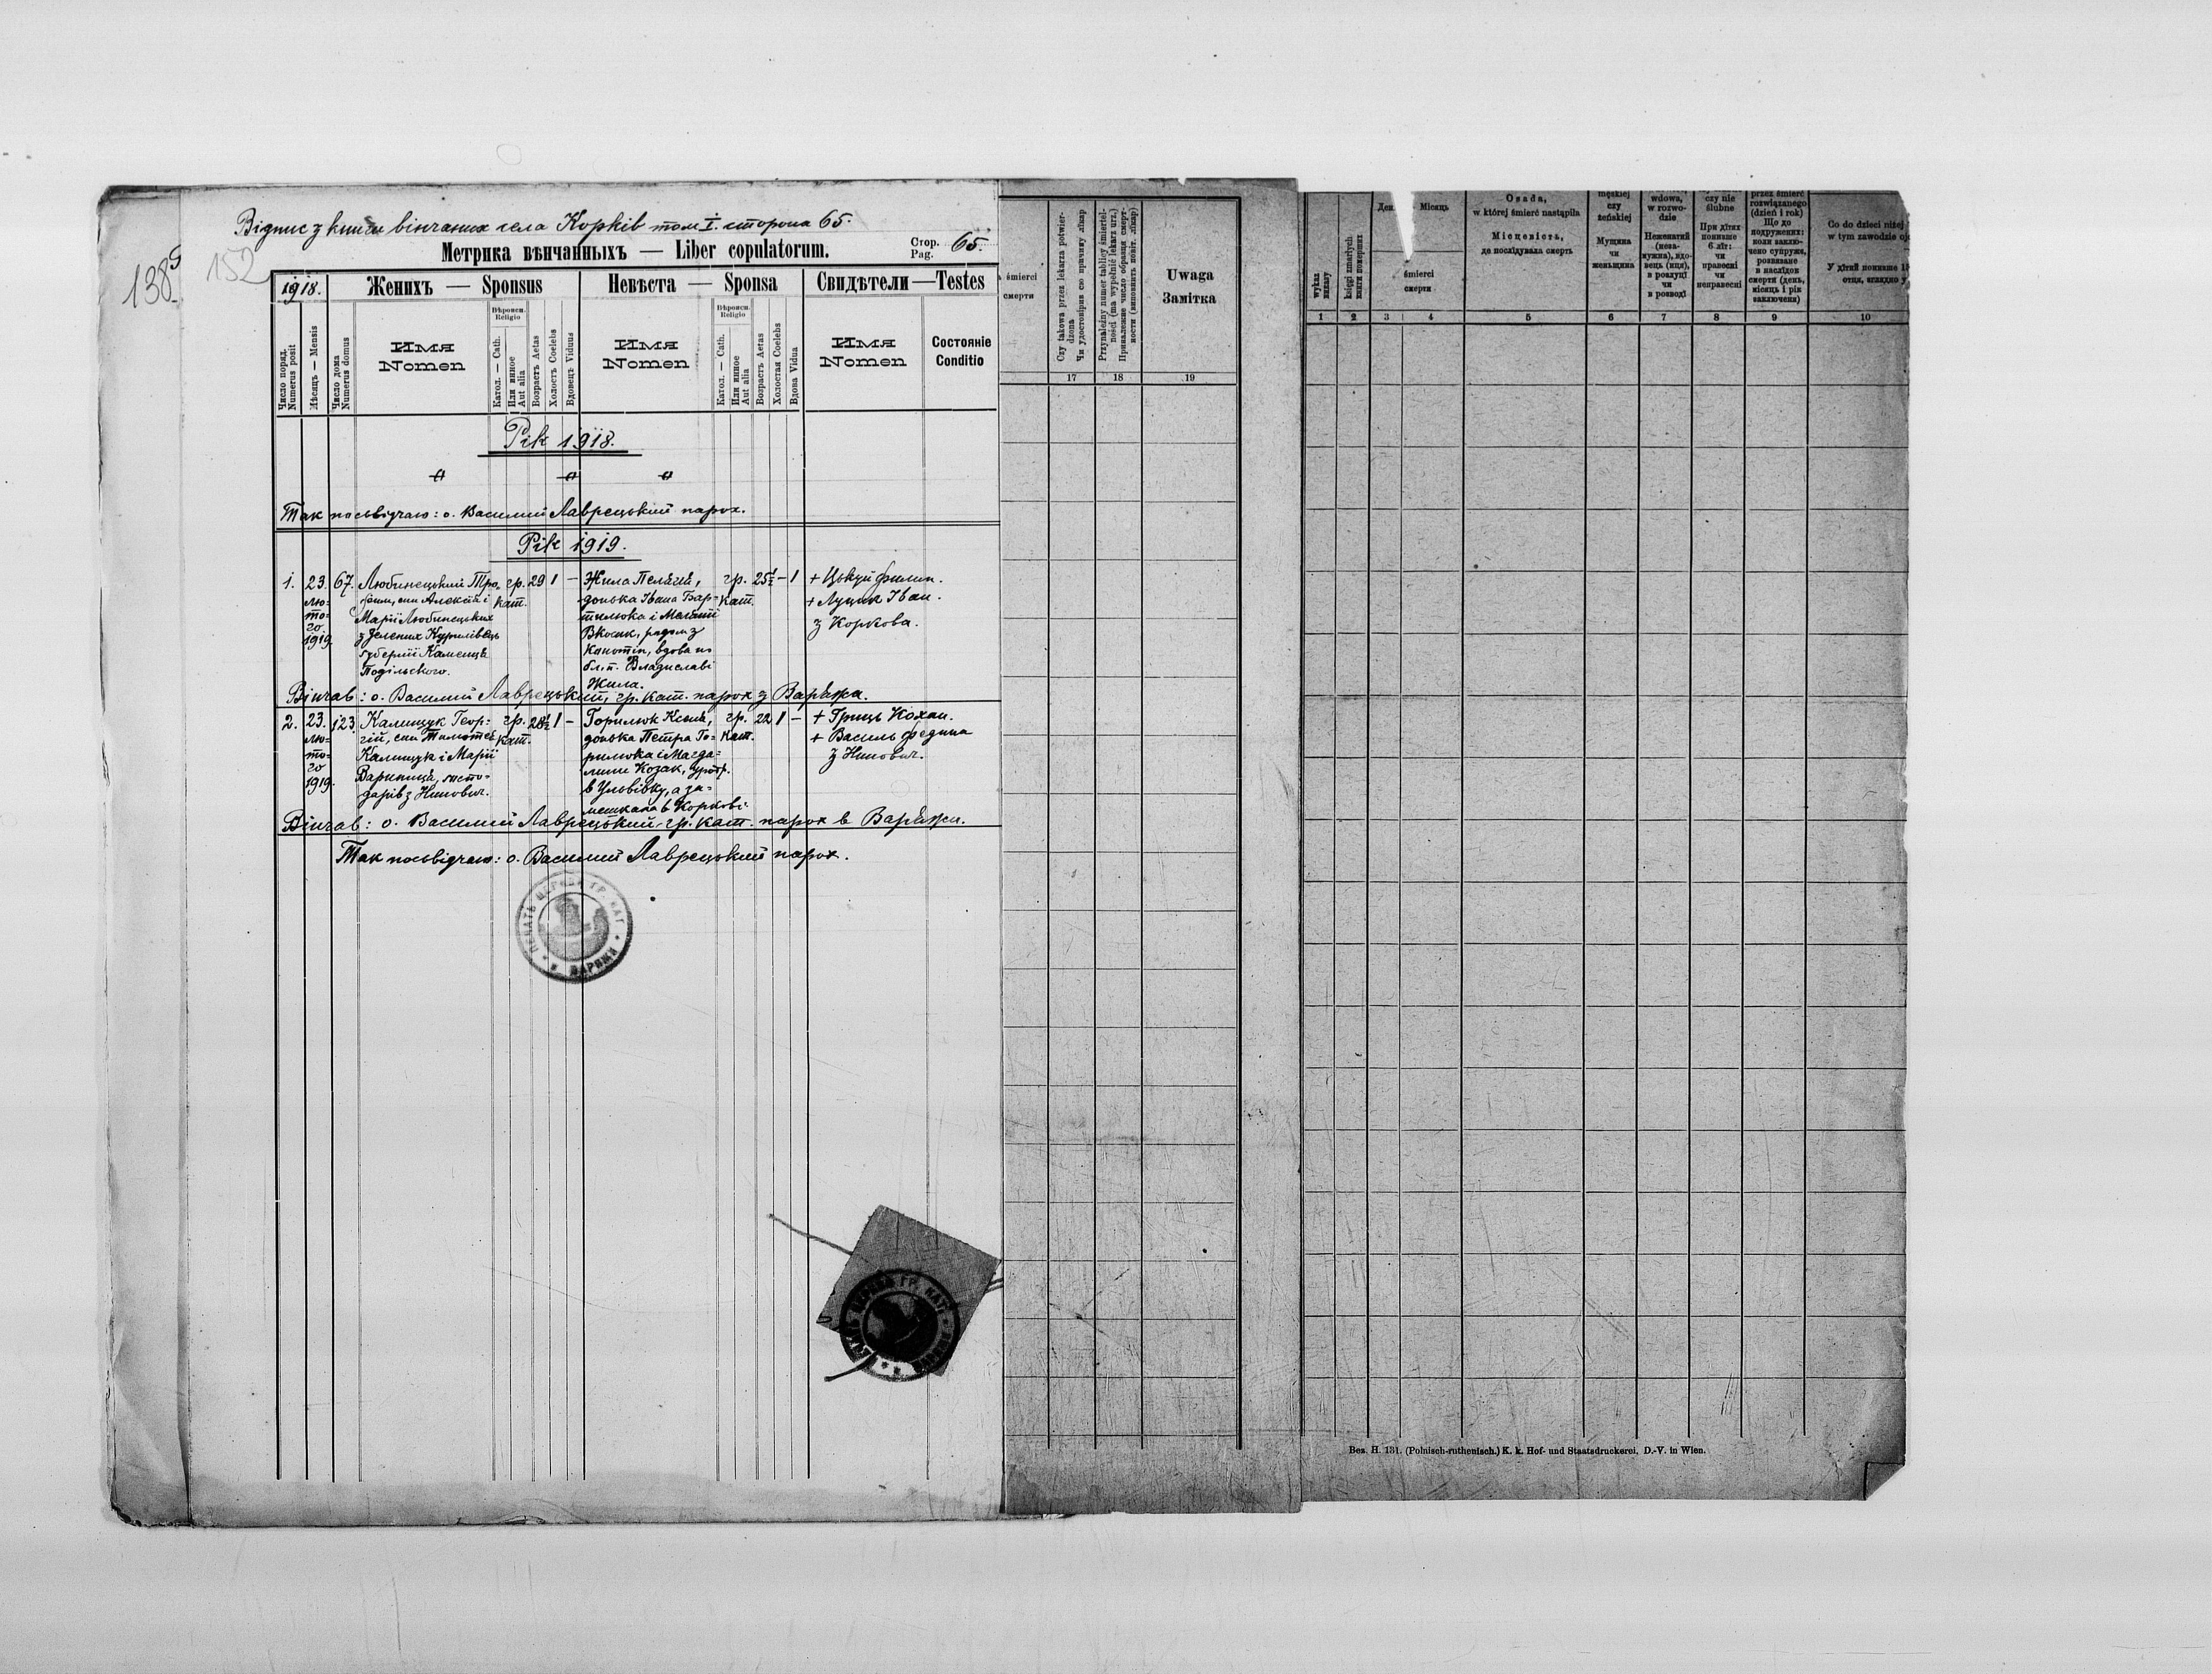 Відпис з книги вінчаних села Корків том I. сторона 65.
138
152
Метрика вѣнчанныхъ — Liber copulatorum.
Стор. Pag. 65.
1918.
Женихъ — Sponsus
Невѣста — Sponsa
Свидѣтели — Testes
Число поряд. Numerus posit
Мѣсяцъ — Mensis
Число дома Numerus domus
Имя Nomen
Вѣроисп. Religio
Катол. — Cath.
Или инное Aut alia
Возрастъ Aetas
Холостъ Coelebs
Вдовецъ Viduus
Имя Nomen
Вѣроисп. Religio
Катол. — Cath.
Или инное Aut alia
Возрастъ Aetas
Холостая Coelebs
Вдова Vidua
Имя Nomen
Состояніе Conditio
Рік 1918.
Так посьвідчаю: о. Василий Лаврецький парох.
Рік 1919.
1. 23. лютого 1919. 67.
Любинецький Тро-
фим, син Алексія і
Марії Любинецьких
з Зелених Курилівець
губернії Каменця
Подільского.
гр. кат. 29 1 –
Жила Пелагія,
донька Івана Бар-
тилюка і Меланії
родом з
вдова по
бл. п. Владиславі
Жила.
гр. кат. 25½ – 1
+ Цькуй Филип.
+ Луцик Іван.
з Коркова.
Вінчав: о. Василий Лаврецький, гр. кат. парох з Варяжа.
2. 23. лютого 1919. 123.
Калищук Геор-
гій, син Тимотея
Калищук і Марії
госпо-
дарів з Нинович.
гр. кат. 28½ 1 –
Горилюк Ксенія,
донька Петра Го-
рилюка і Магда-
лини Козак, урод.
в Ульвівку, а за-
мешкала в Коркові.
гр. кат. 22 1 –
+ Гриць Кохан.
+ Василь Федина
з Нинович.
Вінчав: о. Василий Лаврецький гр. кат. парох в Варяжи.
Так посьвідчаю: о. Василий Лаврецький парох.
ПЕЧАТЬ ЦЕРКВИ ГР. КАТ.
śmierci
смерти
Czy takowa przez lekarza potwier-
dzona
Чи удостовірив сю причину лікар
Przynależny numer tablicy śmiertel-
ności (ma wypełnić lekarz urz.)
Приналежне число образця смерт-
ности (виповнить повіт. лікар)
Uwaga
Замітка
17 18 19
wykaz
księgi zmarłych
книги померших
Ден
Місяць
śmierci
смерти
Osada,
w której śmierć nastąpiła
Місцевість,
де послідувала смерть
męskiej
czy
żeńskiej
Мущина
чи
женьщина
wdowa,
w rozwo-
dzie
Неженатий
(неза-
мужна), вдо-
вець (иця),
в розлуці
чи
в розводі
czy nie
ślubne
При дїтях
понизше
6 літ:
чи
правесні
чи
неправесні
przez śmierć
rozwiązanego
(dzień i rok)
Що до
подружених:
коли заклю-
чено супруже,
розвязане
в наслїдок
смерти (день,
місяць і рік
заключеня)
Co do dzieci niżej
w tym zawodzie
У дїтий понизше
отця, згладно
1 2 3 4 5 6 7 8 9 10
Bez. H. 131. (Polnisch-ruthenisch.) K. k. Hof- und Staatsdruckerei, D.-V. in Wien.